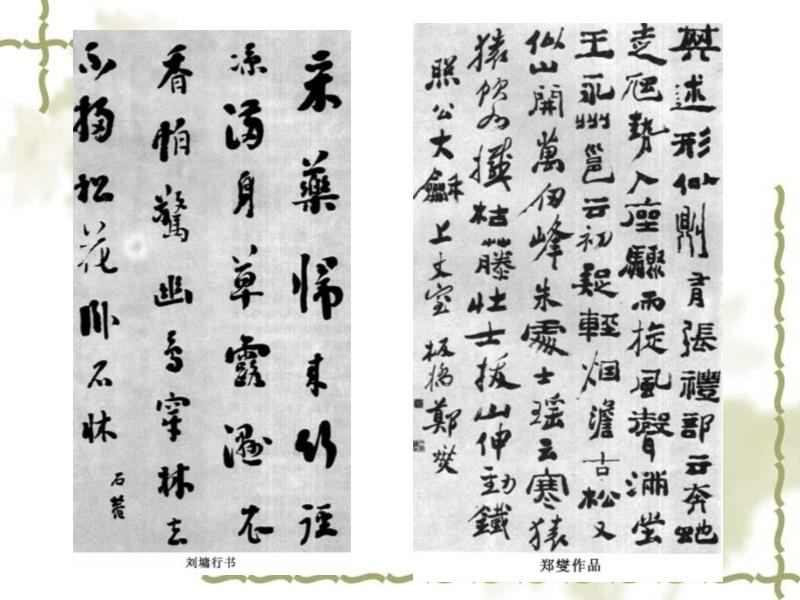 采藥歸来竹徑
凉滿身草露濕衣
香怕驚幽鳥穿林去
不掃松花卧石牀
石菴
刘墉行书
其述形似則有張禮部云奔虵
走虺勢入座驟雨旋風聲滿堂
王永州邕云初疑輕烟澹古松又
似山開萬仞峰朱處士瑶云寒猿
猿飲水撼枯藤壯士拔山伸勁鐵
照公大龢上丈室 板橋鄭燮
郑燮作品